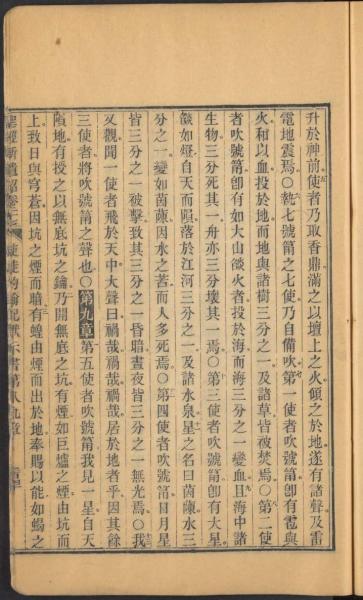 升於神前使者乃取香鼎滿之以壇上之火傾之於地遂有諸聲及雷
電地震焉○執七號筩之七使乃自備吹第一使者吹號筩卽有雹與
火和以血投於地而地與諸樹三分之一及諸草皆被焚焉○第二使
者吹號筩卽有如大山燄火者投於海而海三分之一變血且海中諸
生物三分死其一舟亦三分壞其一焉○第三使者吹號筩卽有大星
燄如燈自天而隕落於江河三分之一及諸水泉星之名曰茵蔯水三
分之一變如茵蔯因水之苦而人多死焉○第四使者吹號筩日月星
皆三分之一被擊致其三分之一昏暗晝夜皆三分之一無光焉○我
又觀聞一使者飛於天中大聲曰禍哉禍哉禍哉居於地者乎因其餘
三使者將吹號筩之聲也○第九章第五使者吹號筩我見一星自天
隕地有授之以無底坑之鑰乃開無底之坑有煙如巨爐之煙由坑而
上致日與穹蒼因坑之煙而暗有蝗由煙而出於地奉賜以能如蝎之
聖經新遺詔 使徒約翰 默示書第八九章